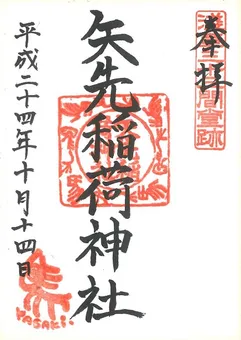 浅草三十三間堂跡
奉拝
矢先稲荷神社
平成二十四年十月十四日
YASAKI.